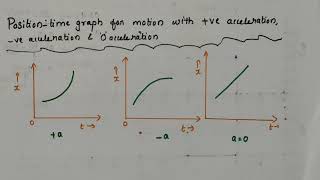 Position-time graph for motion with +ve acceleration,
-ve acceleration & 0 acceleration
x x x
0 t→ 0 t→ 0 t→
+a -a a=0